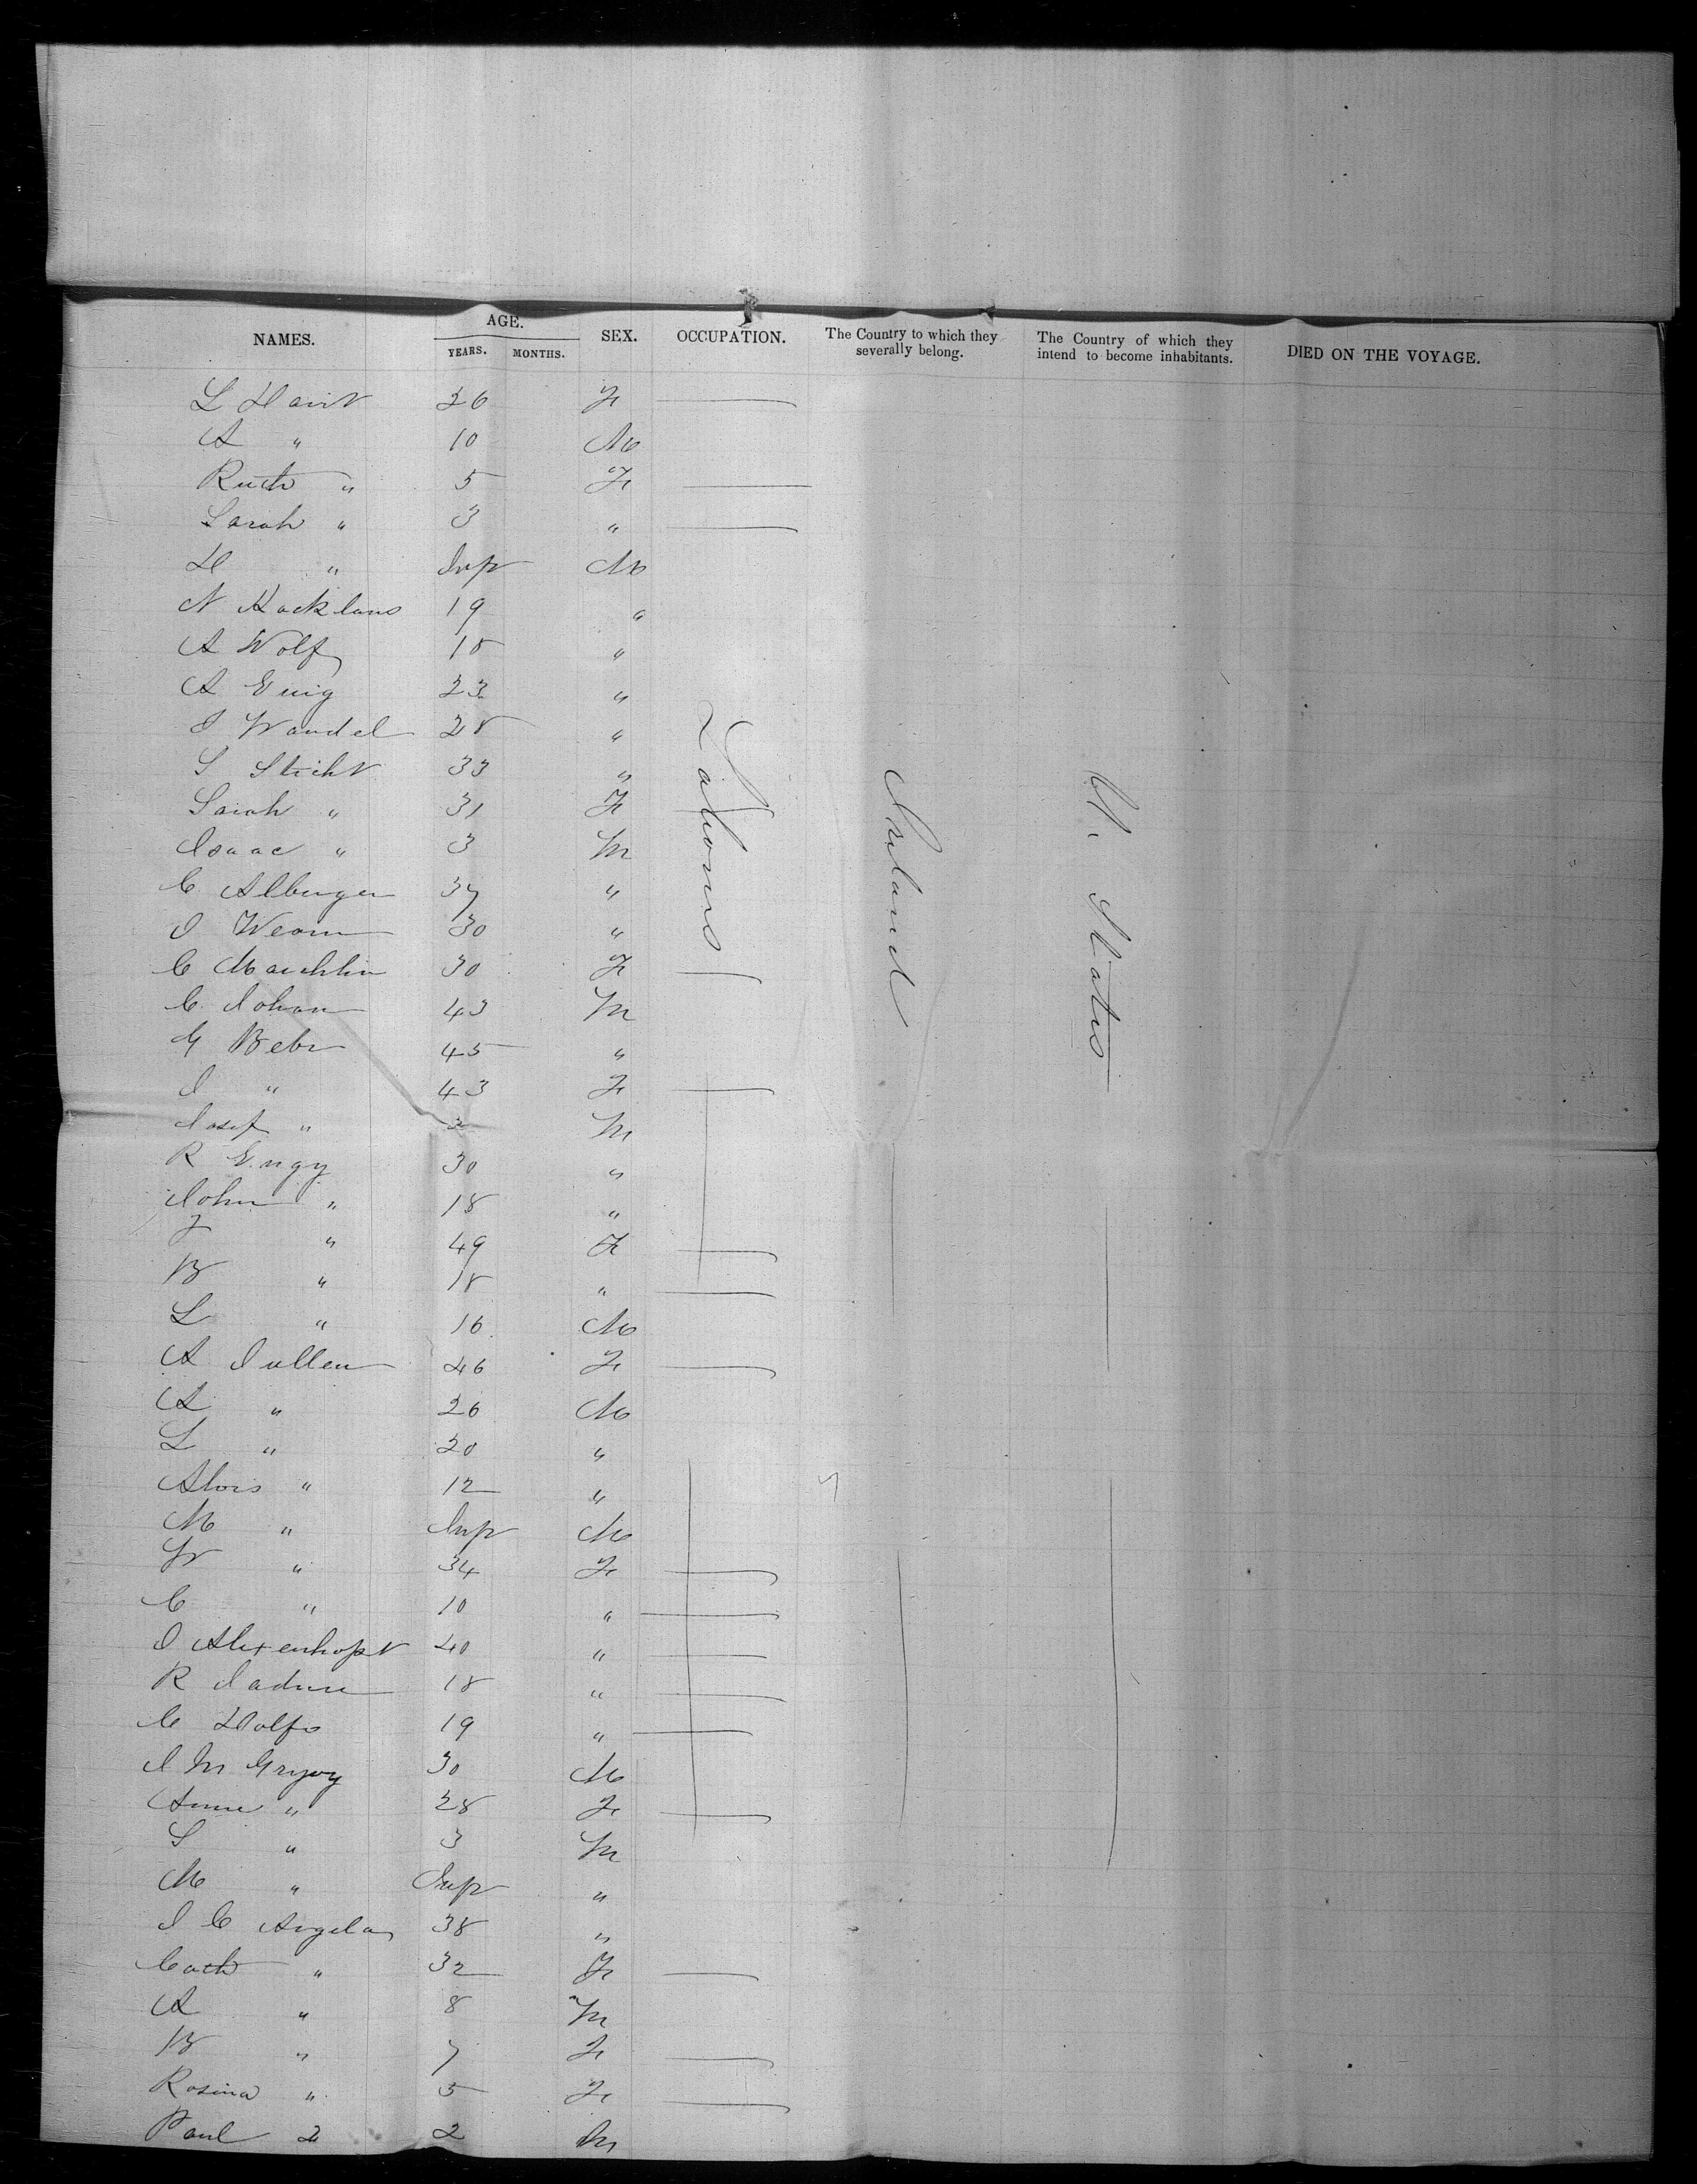 NAMES. AGE. YEARS. MONTHS. SEX. OCCUPATION. The Country to which they severally belong. The Country of which they intend to become inhabitants. DIED ON THE VOYAGE.
L 26 F
A " 10 M
Ruth " 5 F
Sarah " 3 "
H " Inf M
N 19 "
A Wolf "
A 23 "
I Wandel 28 "
S Sticht 33 "
Sarah " 31 F
Isaac " 3 M
C Alberger 37 "
I 30 "
C 30 F
C Johan 43 M
G Bebr 45 "
I " 43 F
Josef " 3 M
R Engy 30 "
John " 18 "
F " 49 F
B " 18 "
L " 16 M
A Jullen 46 F
A " 26 M
L " 20 "
Alois " 12 "
M " Inf M
W " 34 F
C " 10 "
I 40 "
R 18 "
C 19 "
I M 30 M
Anne " 28 F
S " 3 M
M " Inf "
I C Angela 38 "
Cath " 32 F
A " 8 M
B " 7 F
Rosina " 5 F
Paul " 2 M
Labourers
Ireland
U. States